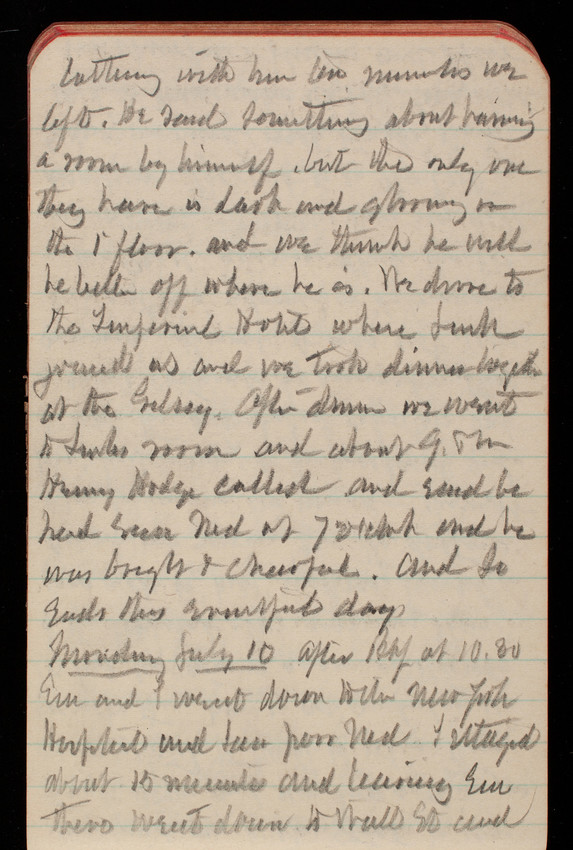 talking with him ten minutes we
left. He said something about having
a room by himself, but the only one
they have is dark and gloomy on
the 1st floor. and we think he will
be better off where he is. We drove to
the Imperial Hotel where
joined us and we took dinner together
at the Gilsey. After dinner we went
to room and about 9. Mr
Henry Hodge called and said he
had seen Ned at 7 o'clock and he
was bright & cheerful. And So
Ends this eventful day
Monday July 10 After Bkf at 10.30
Em and I went down to the New York
Hospital and saw poor Ned. I stayed
about 15 minutes and leaving Em
there went down to Wall St and